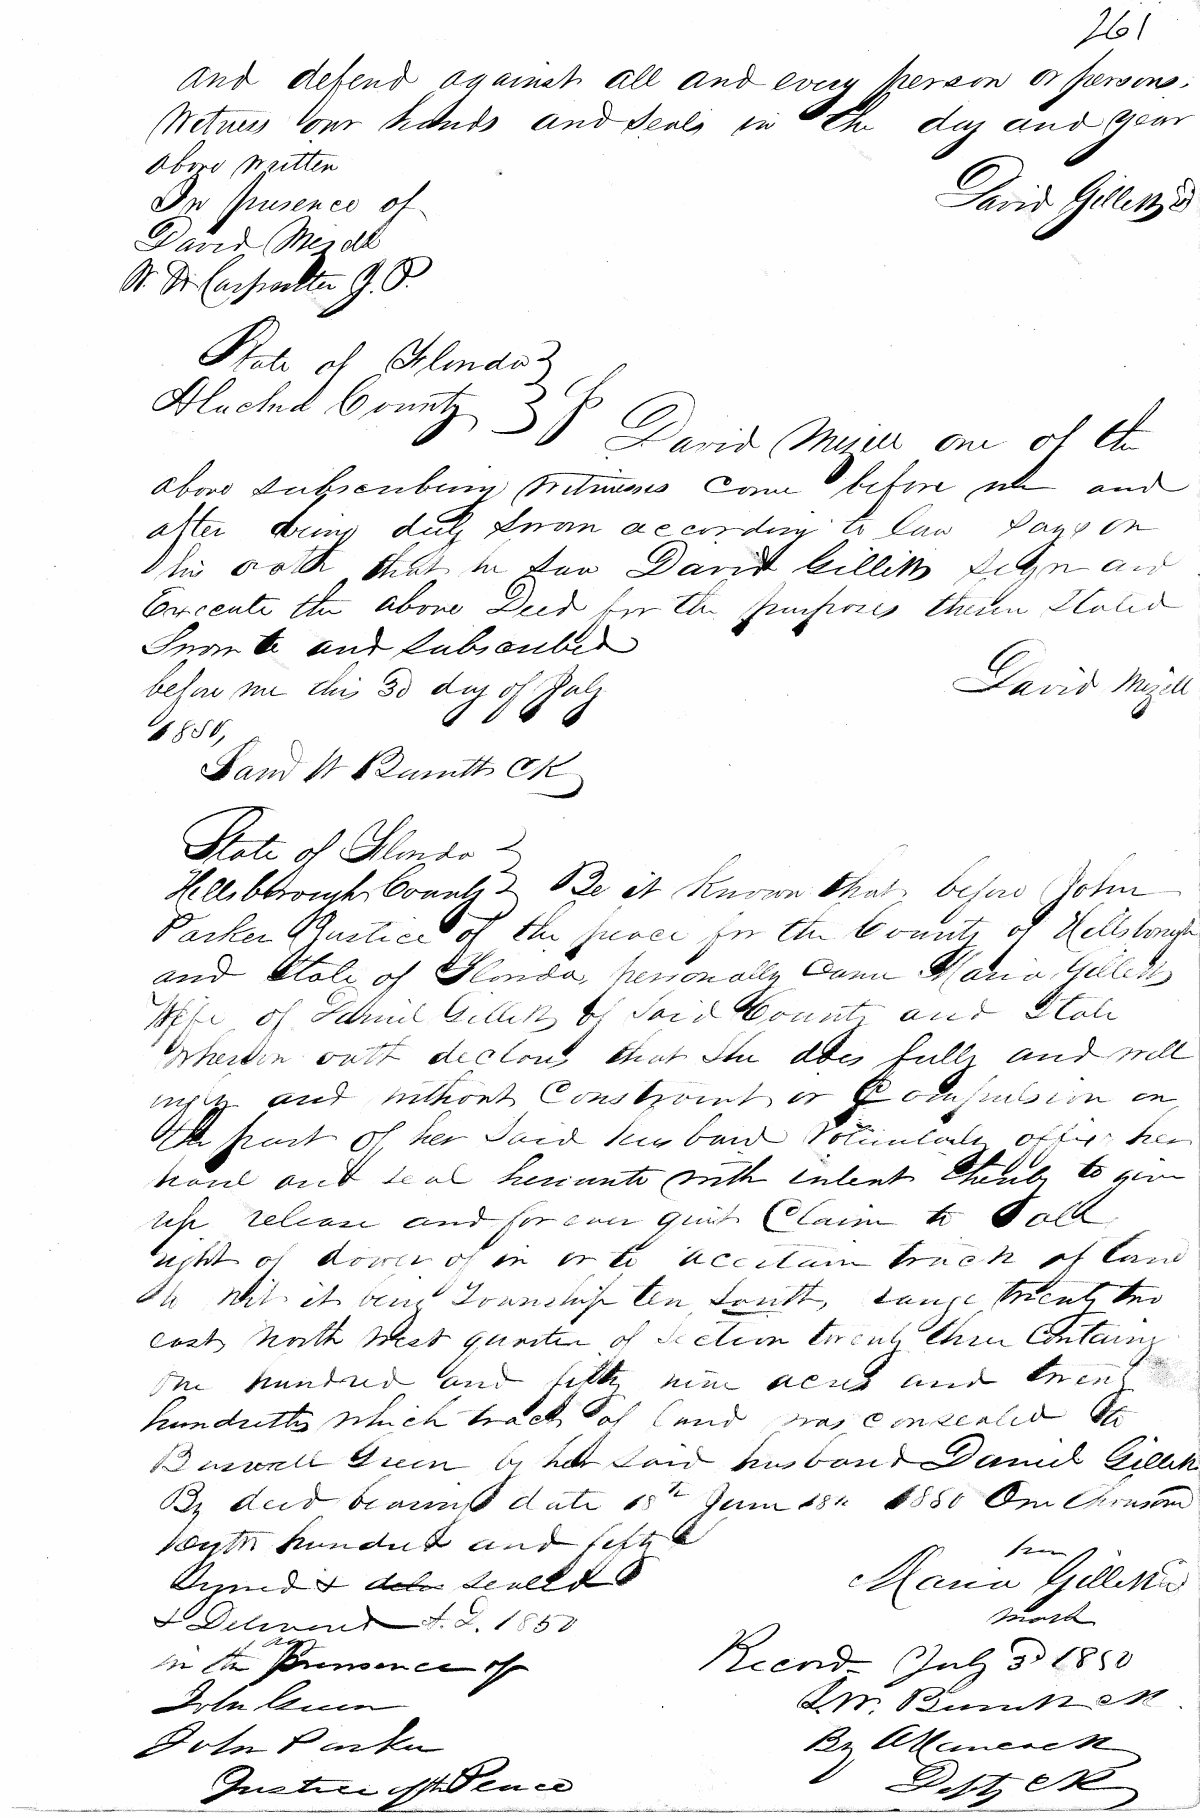 261
and defend against all and every person or persons.
Witness our hands and seals in the day and year
above written
In presence of
David Gilletts
David Mizell
W. W. Carpenter J. P.
State of Florida }
Aluchua County }
David Mizell one of the
above subscribing Witnesses come before me and
after being duly Sworn according to law says on
his oath that he saw David Gilletts Sign and
Execute the above Deed for the purposes therein Stated
Sworn to and subscribed
before me this 3d day of July
David Mizell
1850,
Saml W Burnett CK
State of Florida }
Hillsborough County } Be it known that before John
Parker Justice of the peace for the County of Hillsborough
and State of Florida, personally Came Maria Gilletts
Wife of Daniel Gilletts of Said County and State
who on oath declous that She does fully and will
ingly and without Constraint or Compulsion on
the part of her Said husband Voluntarily affix her
hand and seal hereunto with intent thereby to give
up release and for ever quit Claim to all
right of dower of in or to a certain track of land
to wit it being Township ten South, range twenty two
east North West quarter of Section twenty three Containg
One hundred and fifty nine acres and twenty
hundretths which tract of land was
Green by her Said husband Daniel Gilletts
By deed bearing date 18th June 1850 One thousand
hundred and fifty
Signed & sealed
her
Maria Gilletts
mark
& Delivered A. D. 1850
in the of
Record July 3d 1850
John Green
S. W. Burnett CK.
John Parker
By
Justice of the Peace
Depty CK